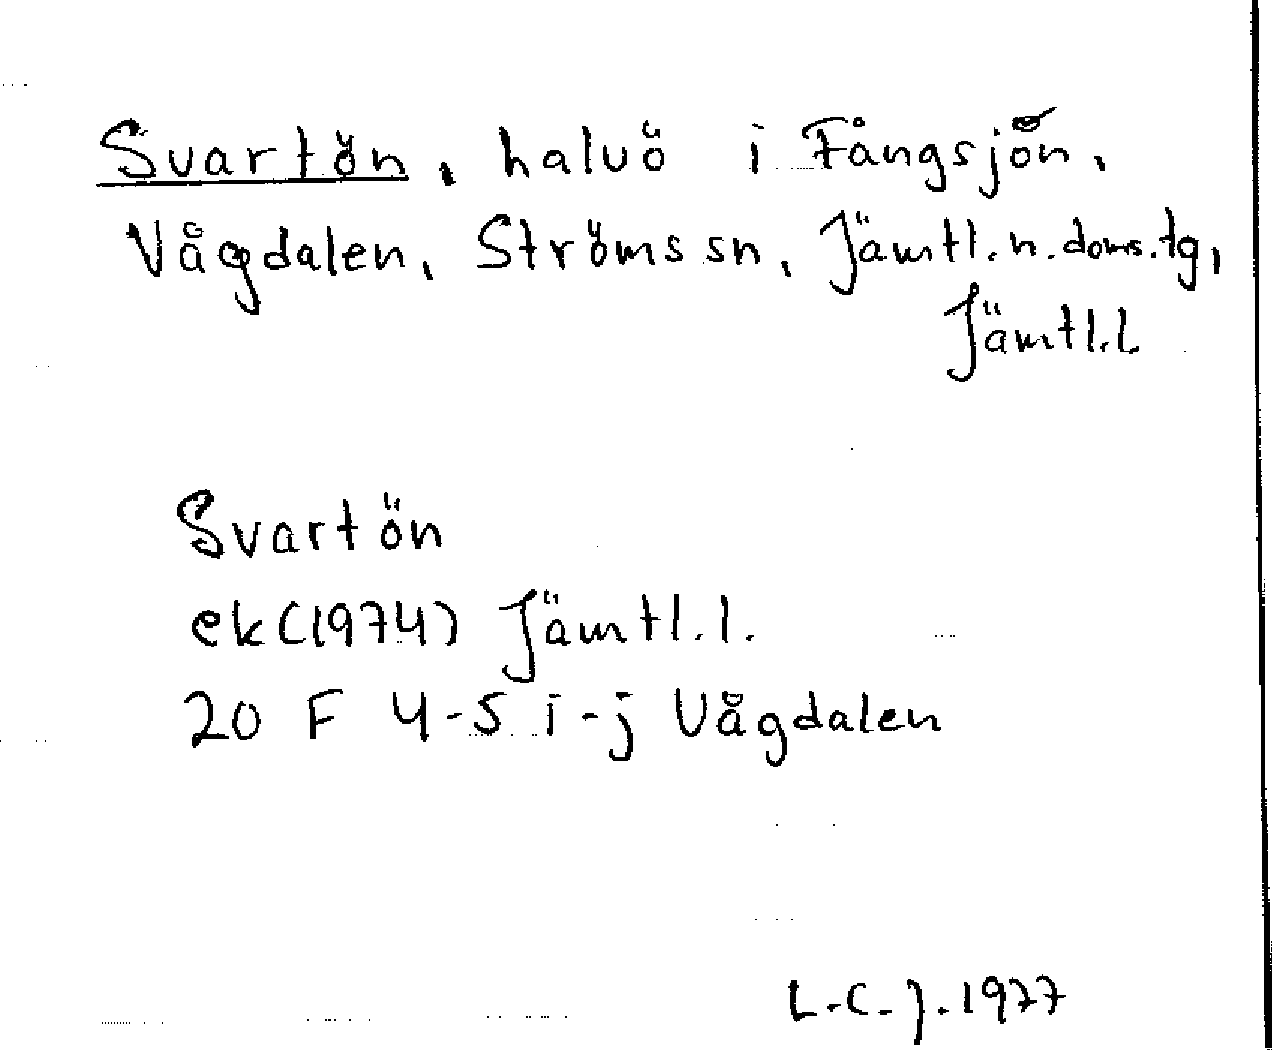 Svartön, halvö i Fångsjön,
Vågdalen, Ströms sn, Jämtl. n. doms. tg,
Jämtl. l.
Svartön
ek (1974) Jämtl. l.
20 F 4-5 i-j Vågdalen
L.C.J. 1977